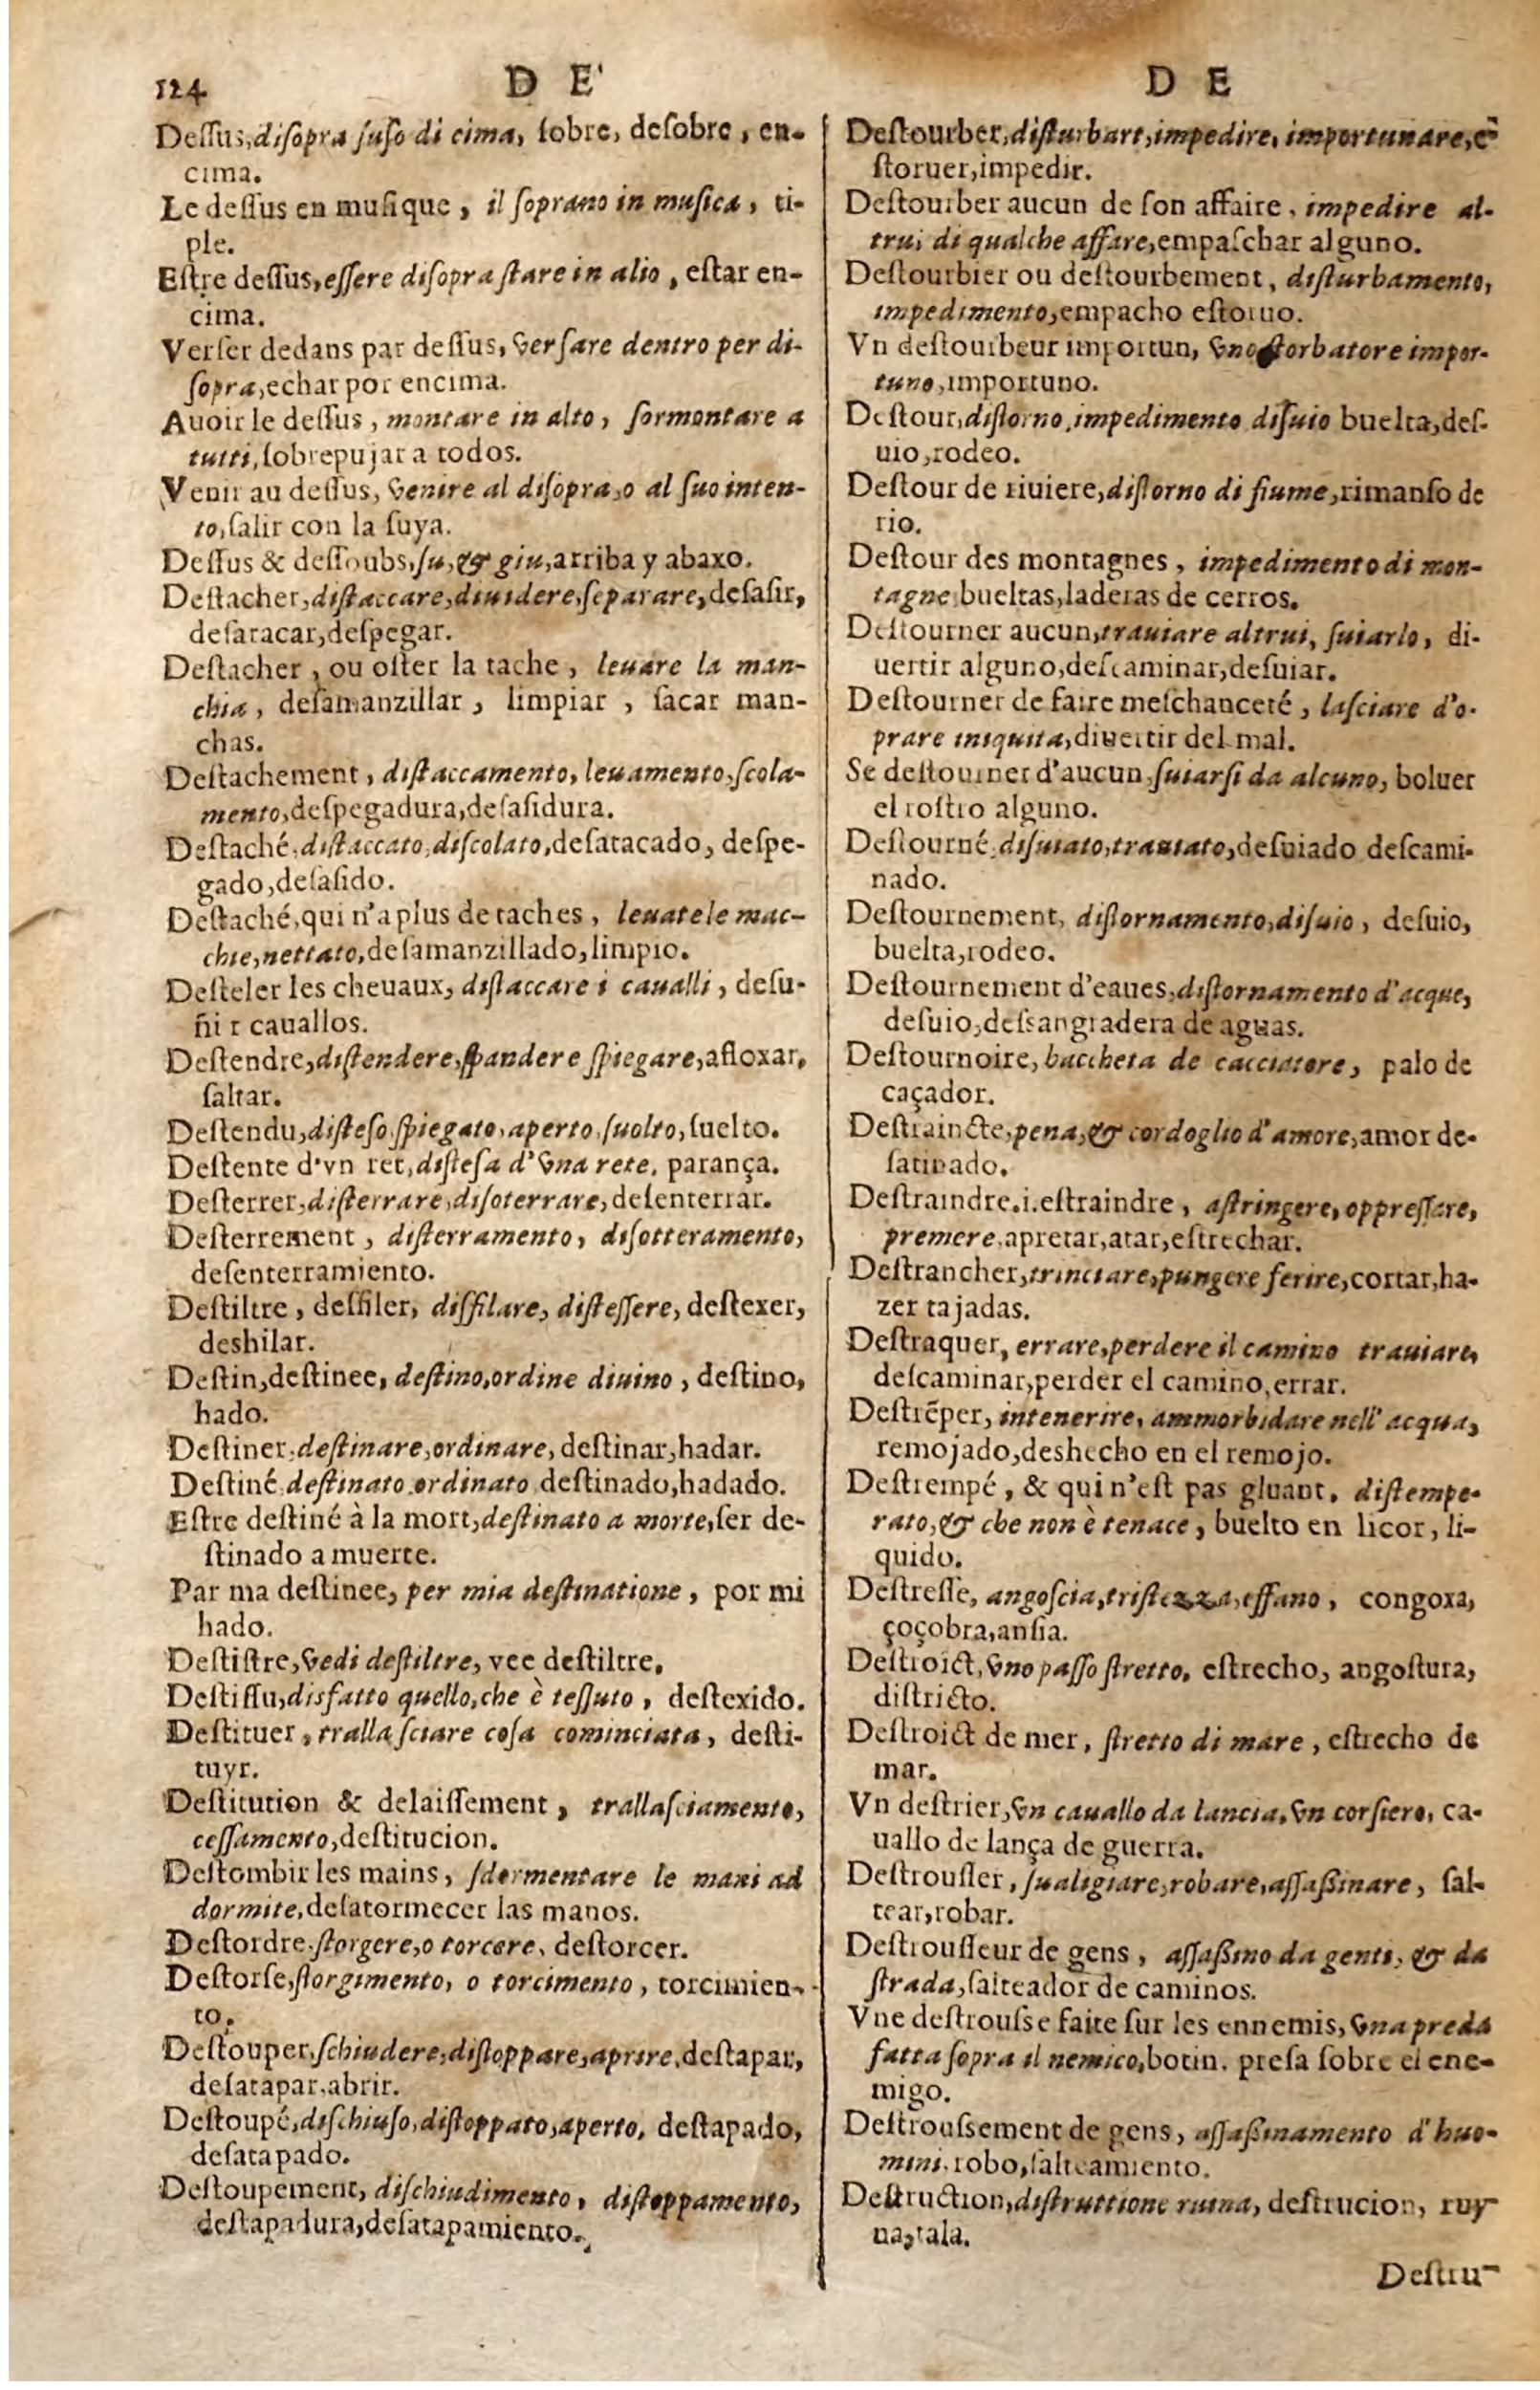 124
D E'
Deſſus,diſopra ſuſo di cima, ſobre, deſobre, en-
cima.
Le deſſus en muſique, il ſoprano in muſica, ti-
ple.
Eſtre deſſus,eſſere diſopra ſtare in alto, eſtar en-
cima.
Verſer dedans par deſſus, verſare dentro per di-
ſopra,echar por encima.
Auoir le deſſus, montare in alto, ſormontare a
tutti,ſobrepujar a todos.
Venir au deſſus, venire al diſopra,o al ſuo inten-
to,ſalir con la ſuya.
Deſſus & deſſoubs,ſu,& giu,arriba y abaxo.
Deſtacher,diſtaccare,diuidere,ſeparare,deſaſir,
deſatacar,deſpegar.
Deſtacher, ou oſter la tache, leuare la man-
chia, deſamanzillar, limpiar, ſacar man-
chas.
Deſtachement, diſtaccamento, leuamento,ſcola-
mento,deſpegadura,deſaſidura.
Deſtaché,diſtaccato,diſcolato,deſatacado, deſpe-
gado,deſaſido.
Deſtaché,qui n'a plus de taches, leuatele mac-
chie,nettato,deſamanzillado,limpio.
Deſteler les cheuaux, diſtaccare i caualli, deſu-
ñir cauallos.
Deſtendre,diſtendere,ſpandere ſpiegare,afloxar,
ſaltar.
Deſtendu,diſteſo,ſpiegato,aperto,ſuolto,ſuelto.
Deſtente d'vn ret,diſteſa d'vna rete, parança.
Deſterrer,diſterrare,diſoterrare,deſenterrar.
Deſterrement, diſterramento, diſotteramento,
deſenterramiento.
Deſtiltre, deſfiler, diſfilare, diſteſſere, deſtexer,
deshilar.
Deſtin,deſtinee, deſtino,ordine diuino, deſtino,
hado.
Deſtiner,deſtinare,ordinare, deſtinar,hadar.
Deſtiné,deſtinato,ordinato deſtinado,hadado.
Eſtre deſtiné à la mort,deſtinato a morte,ſer de-
ſtinado a muerte.
Par ma deſtinee, per mia deſtinatione, por mi
hado.
Deſtiſtre,vedi deſtiltre, vee deſtiltre.
Deſtiſſu,disfatto quello,che è teſſuto, deſtexido.
Deſtituer, trallaſciare coſa cominciata, deſti-
tuyr.
Deſtitution & delaiſſement, trallaſciamento,
ceſſamento,deſtitucion.
Deſtombir les mains, ſdormentare le mani ad
dormite,deſatormecer las manos.
Deſtordre,ſtorgere,o torcere, deſtorcer.
Deſtorſe,ſtorgimento, o torcimento, torcimien-
to.
Deſtouper,ſchiudere,diſtoppare,aprire,deſtapar,
deſatapar,abrir.
Deſtoupé,diſchiuſo,diſtoppato,aperto, deſtapado,
deſatapado.
Deſtoupement, diſchiudimento, diſtoppamento,
deſtapadura,deſatapamiento.
D E
Deſtourber,diſturbart,impedire, importunare,e
ſtoruer,impedir.
Deſtourber aucun de ſon affaire, impedire al-
trui di qualche affare,empaſchar alguno.
Deſtourbier ou deſtourbement, diſturbamento,
impedimento,empacho eſtoruo.
Vn deſtourbeur importun, vno ſtorbatore impor-
tuno,importuno.
Deſtour,diſtorno,impedimento diſuio buelta,deſ-
uio,rodeo.
Deſtour de riuiere,diſtorno di fiume,rimanſo de
rio.
Deſtour des montagnes, impedimento di mon-
tagne bueltas,laderas de cerros.
Deſtourner aucun,trauiare altrui, ſuiarlo, di-
uertir alguno,deſcaminar,deſuiar.
Deſtourner de faire meſchanceté, laſciare d'o-
prare iniquita,diuertir del mal.
Se deſtourner d'aucun,ſuiarſi da alcuno, boluer
el roſtro alguno.
Deſtourné,diſuiato,trauiato,deſuiado deſcami-
nado.
Deſtournement, diſtornamento,diſuio, deſuio,
buelta,rodeo.
Deſtournement d'eaues,diſtornamento d'acque,
deſuio,deſsangradera de aguas.
Deſtournoire, baccheta de cacciatore, palo de
caçador.
Deſtraincte,pena,& cordoglio d'amore,amor de-
ſatinado.
Deſtraindre.i.eſtraindre, aſtringere,oppreſſare,
premere,apretar,atar,eſtrechar.
Deſtrancher,trinciare,pungere ferire,cortar,ha-
zer tajadas.
Deſtraquer, errare,perdere il camino trauiare,
deſcaminar,perder el camino,errar.
Deſtrẽper, intenerire, ammorbidare nell' acqua,
remojado,deshecho en el remojo.
Deſtrempé, & qui n'eſt pas gluant, diſtempe-
rato,& che non è tenace, buelto en licor, li-
quido.
Deſtreſſe, angoſcia,triſtezza,effano, congoxa,
çoçobra,anſia.
Deſtroict,vno paſſo ſtretto, eſtrecho, angoſtura,
diſtricto.
Deſtroict de mer, ſtretto di mare, eſtrecho de
mar.
Vn deſtrier,vn cauallo da lancia,vn corſiero, ca-
uallo de lança de guerra.
Deſtrouſſer, ſualigiare,robare,aſſaßinare, ſal-
tear,robar.
Deſtrouſſeur de gens, aſſaßino da genti, & da
ſtrada,ſalteador de caminos.
Vne deſtrouſse faite ſur les ennemis,vna preda
fatta ſopra il nemico,botin, preſa ſobre el ene-
migo.
Deſtrouſsement de gens, aſſaßinamento d'huo-
mini,robo,ſalteamiento.
Deſtruction,diſtruttione ruina, deſtrucion, ruy-
na,tala.
Deſtru-